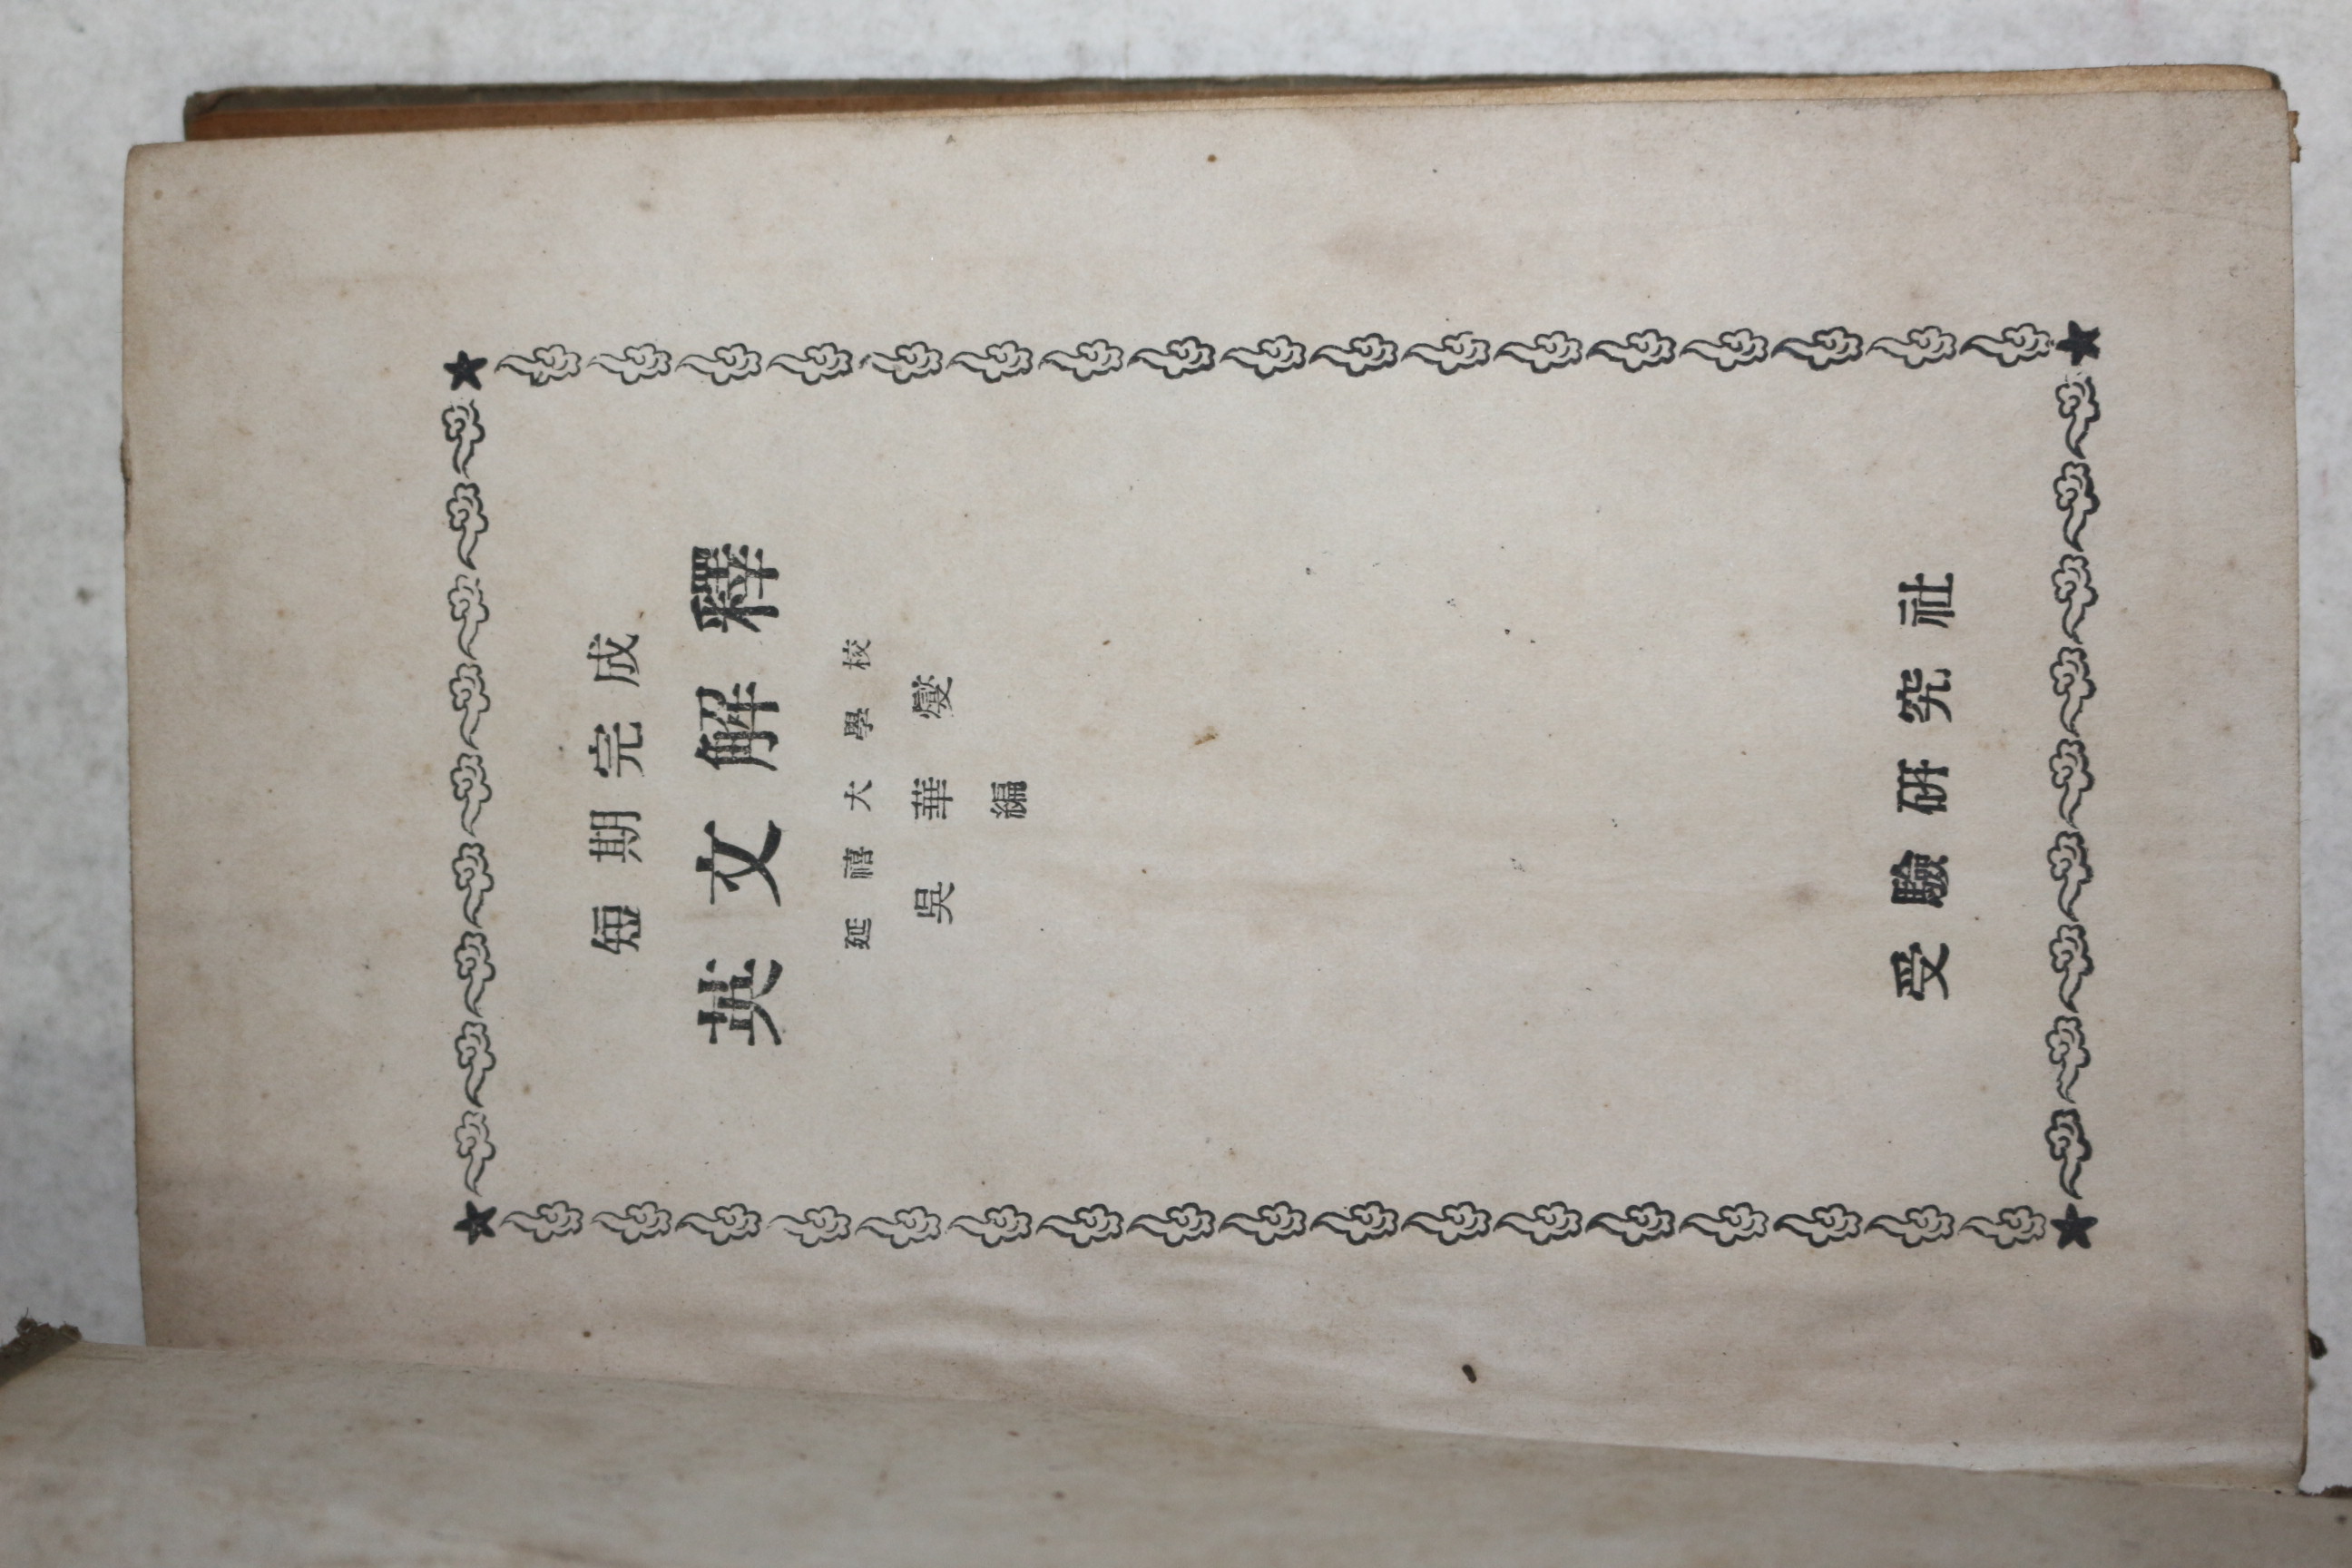 短期完成
英文解釋
延禧大學校
吳華燮
編
受驗硏究社